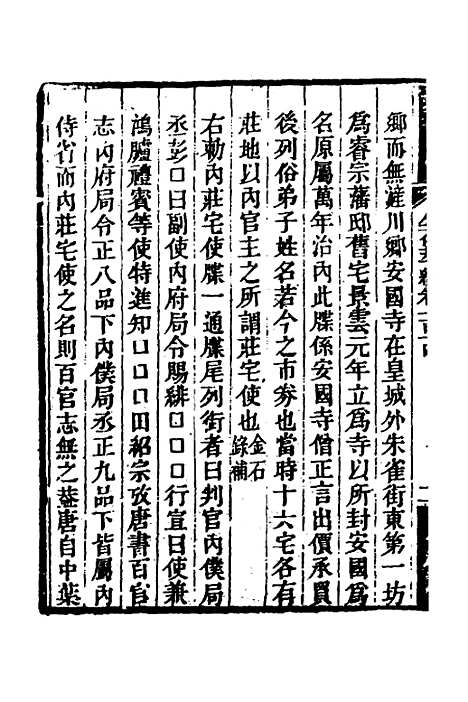 鄉而無滻川鄉安國寺在皇城外朱雀街東第一坊
爲睿宗藩邸舊宅景雲元年立爲寺以所封安國爲
名原屬萬年治內此牒係安國寺僧正言出價承買
後列俗弟子姓名若今之市券也當時十六宅各有
莊地以內官主之所謂莊宅使也金石錄補
右勅內莊宅使牒一通牒尾列銜者曰判官內僕局
丞彭口曰副使內府局令賜緋口口口行宜曰使兼
鴻臚禮賓等使特進知口口口口田紹宗攷唐書百官
志內府局令正八品下內僕局丞正九品下皆屬內
侍省而內莊宅使之名則百官志無之蓋唐自中葉